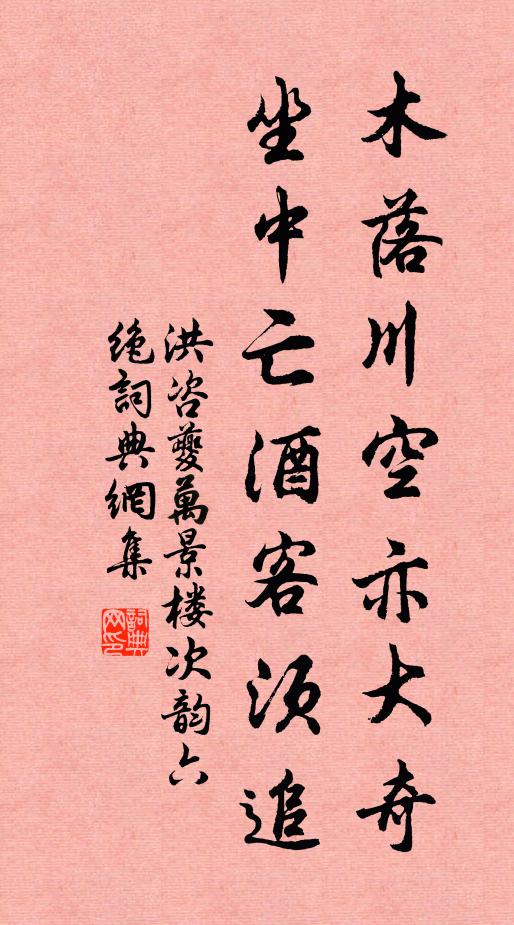 木落川空亦大奇
坐中亡酒客须追
洪咨夔萬景楼次韵六
绝詞典網集
詞典網印